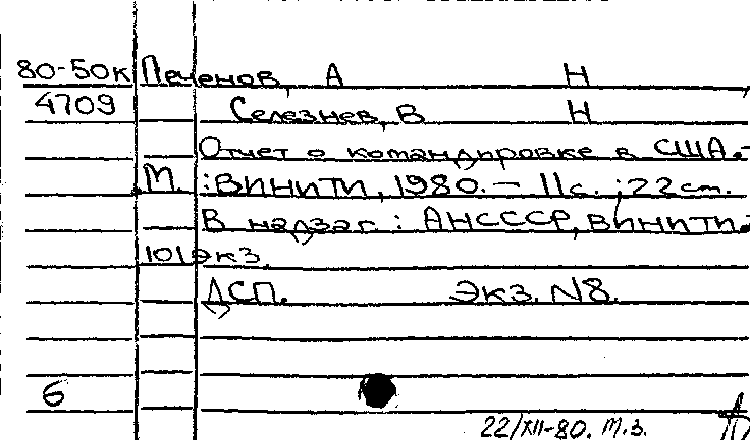 80-50к Печенов, А Н
4709 Селезнев, В Н
Отчет о командировке в США.-
М. : ВИНИТИ, 1980. – 11с. ; 22 см.
В надзаг : АНСССР, ВИНИТИ.-
101экз.
ДСП. Экз. N8.
6
22/XII-80. М.З.